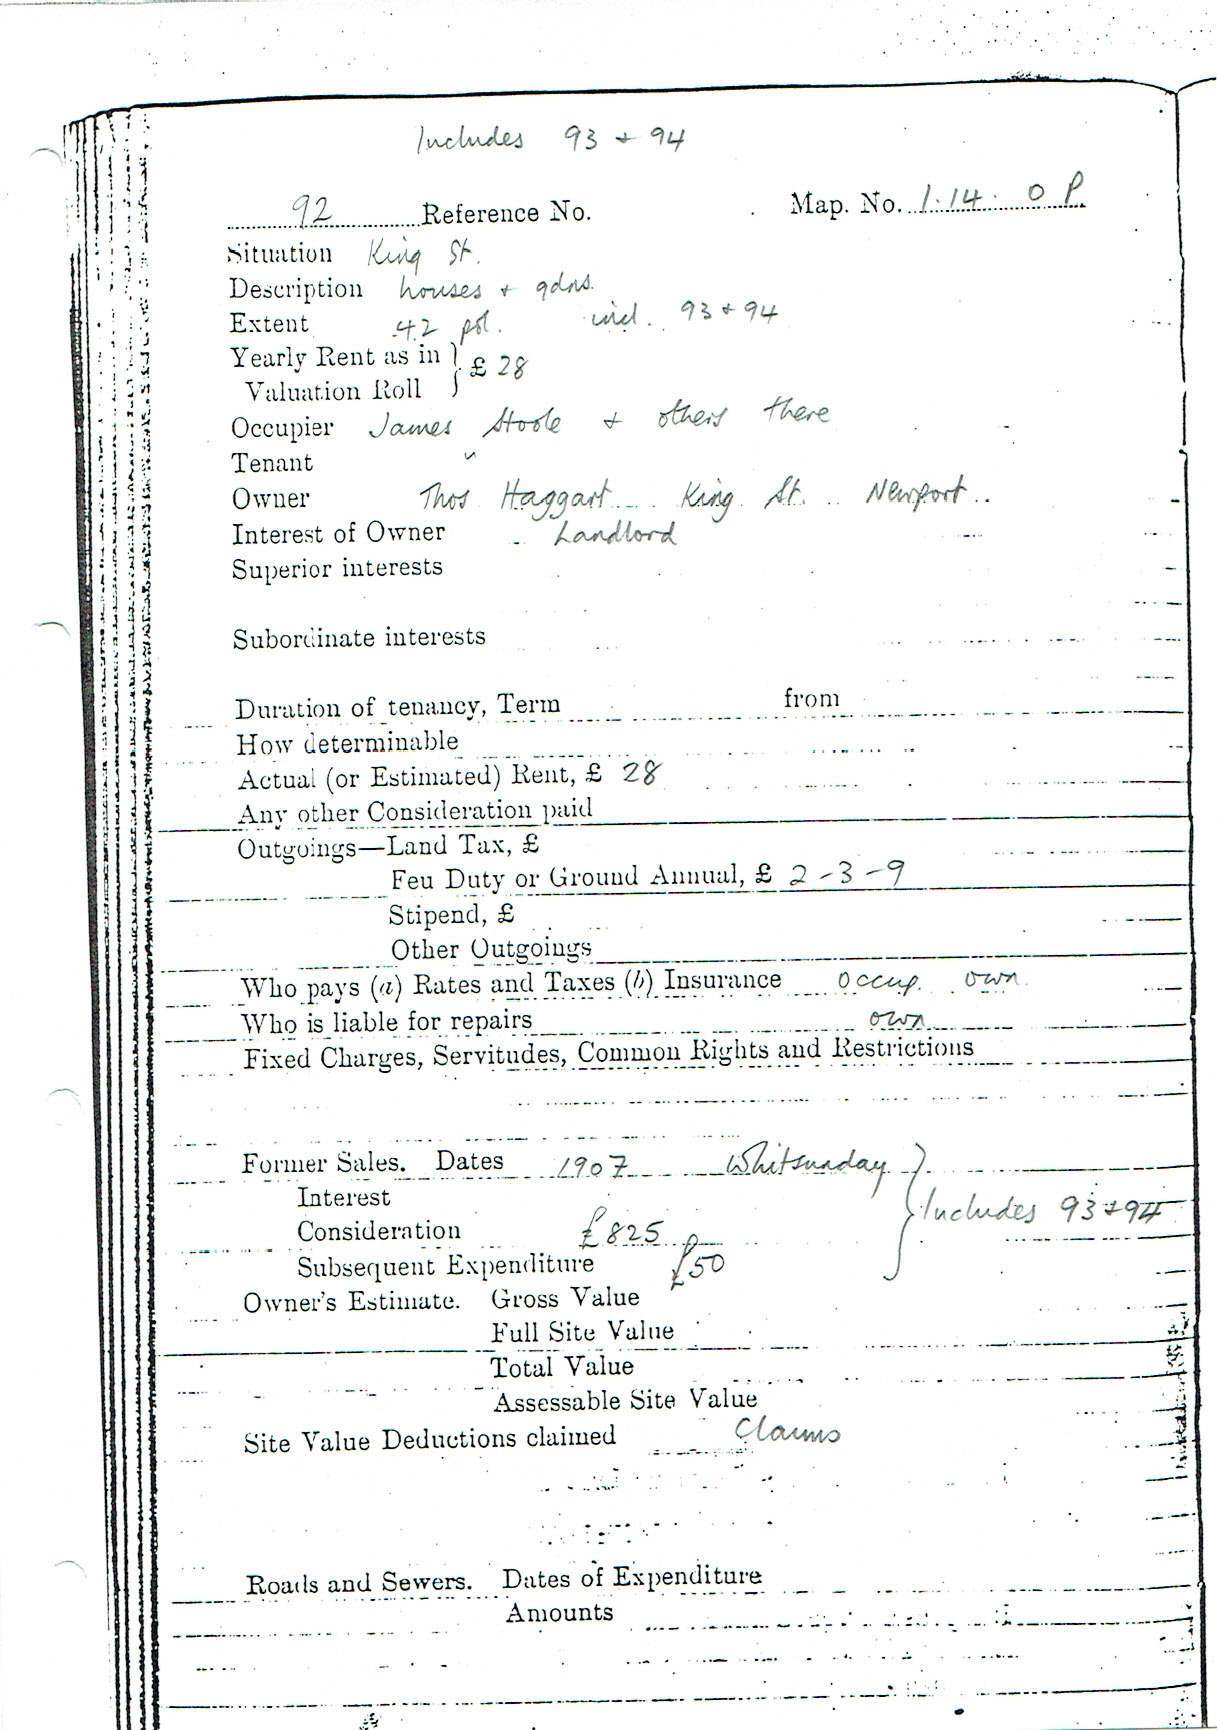 Includes 93 + 94
92 Reference No. Map. No. 1.14. O P.
Situation King St.
Description houses + gdns.
Extent .42 pol. incl. 93 + 94
Yearly Rent as in
Valuation Roll } £ 28
Occupier James Stoole + others there
Tenant "
Owner Thos Haggart King St. Newport
Interest of Owner Landlord
Superior interests
Subordinate interests
Duration of tenancy, Term from
How determinable
Actual (or Estimated) Rent, £ 28
Any other Consideration paid
Outgoings—Land Tax, £
Feu Duty or Ground Annual, £ 2-3-9
Stipend, £
Other Outgoings
Who pays (a) Rates and Taxes (b) Insurance occup. own
Who is liable for repairs own
Fixed Charges, Servitudes, Common Rights and Restrictions
Former Sales. Dates 1907 Whitsunday
Interest } Includes 93 + 94
Consideration £825
Subsequent Expenditure £50
Owner's Estimate. Gross Value
Full Site Value
Total Value
Assessable Site Value
Site Value Deductions claimed Claims
Roads and Sewers. Dates of Expenditure
Amounts